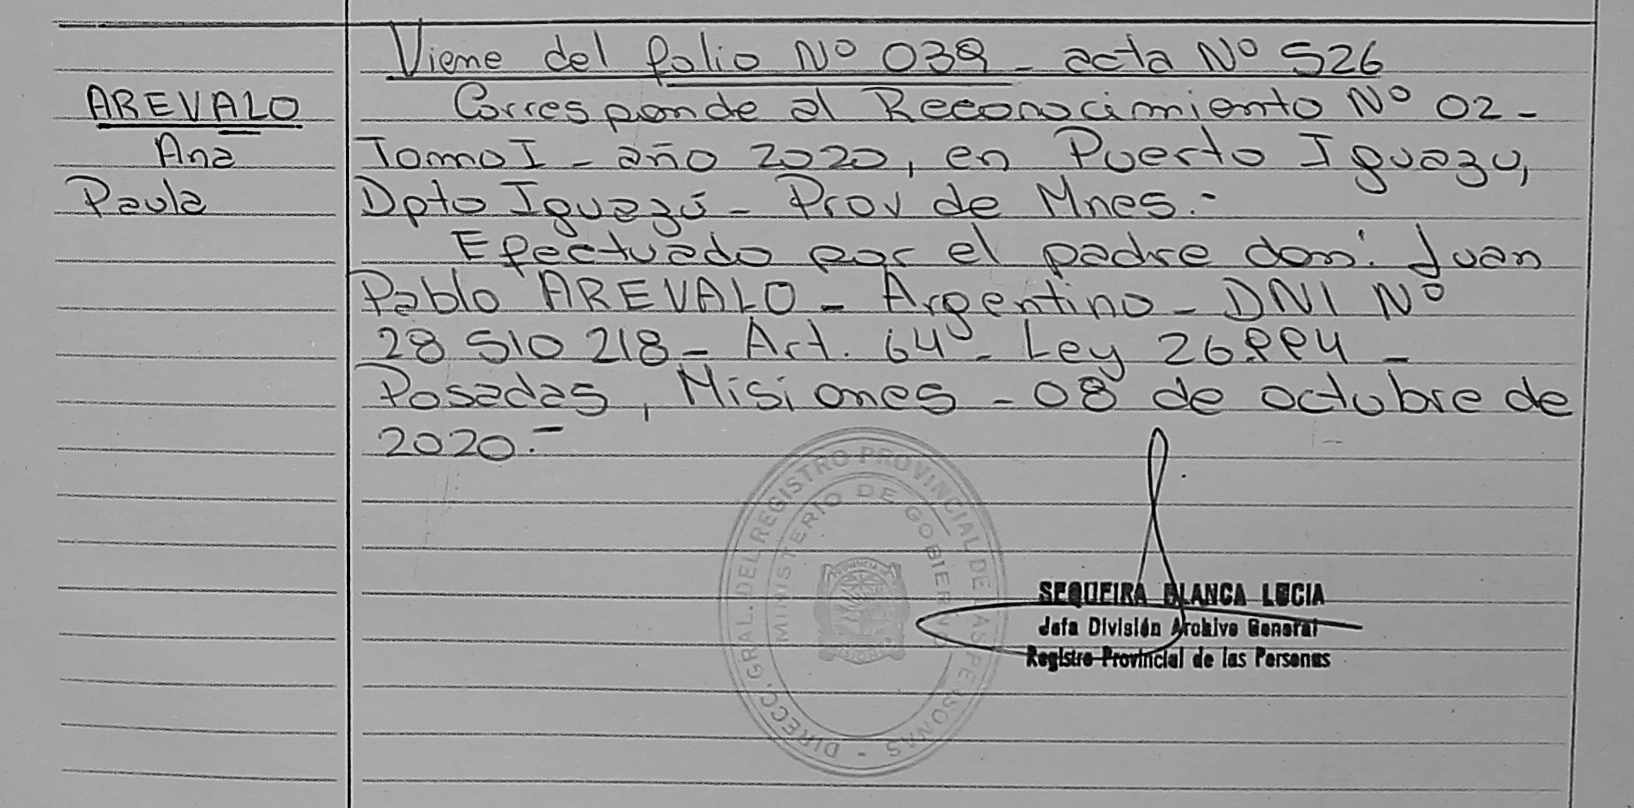 Viene del folio Nº 039 - acta Nº 526
AREVALO
Ana
Paula
Corresponde al Reconocimiento Nº 02 -
Tomo I - año 2020, en Puerto Iguazu,
Dpto Iguazú - Prov de Mnes.-
Efectuado por el padre don: Juan
Pablo AREVALO - Argentino - DNI Nº
28 510 218 - Art. 64º - Ley 26.994 -
Posadas, Misiones - 08 de octubre de
2020.-
DIRECC. GRAL. DEL REGISTRO PROVINCIAL DE LAS PERSONAS -
MINISTERIO DE GOBIERNO
SEQUEIRA BLANCA LUCIA
Jefa División Archivo General
Registro Provincial de las Personas